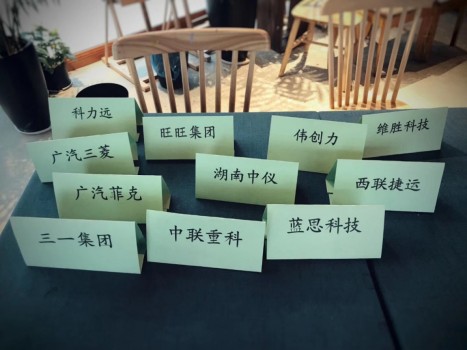 科力远
旺旺集团
伟创力
维胜科技
广汽三菱
湖南中仪
西联捷运
广汽菲克
三一集团
中联重科
蓝思科技